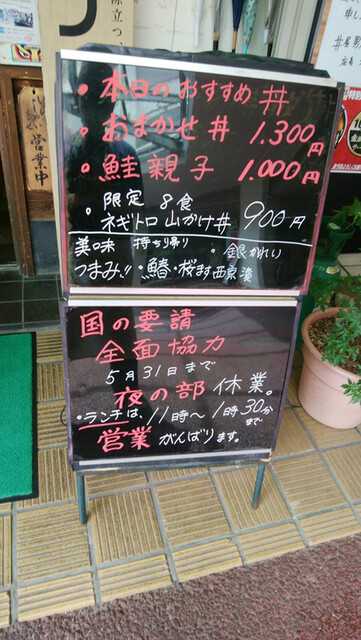 • 本日のおすすめ 丼
• おまかせ丼 1.300円
• 鮭親子 1.000円
• 限定 8食
ネギトロ山かけ丼 900円
美味 持ち帰り • 銀かれい
つまみ!! • 鰆・桜ます西京漬
国の要請
全面協力
5月31日まで
夜の部 休業。
• ランチは、11時〜1時30分まで
営業 がんばります。
営業中